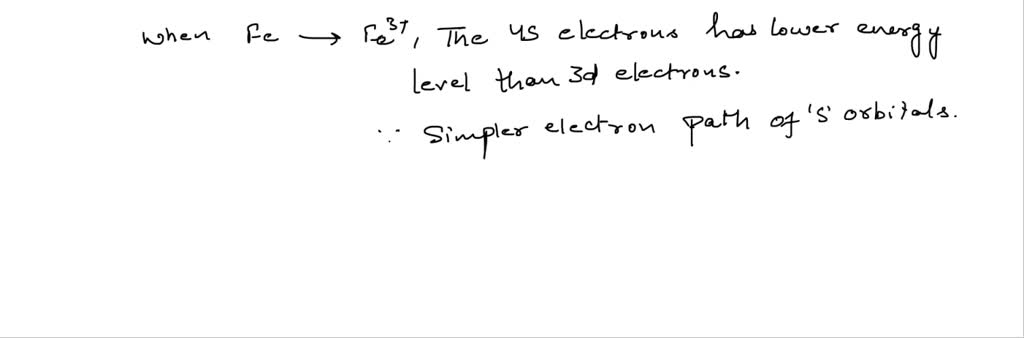 when Fe → Fe³⁺, The 4s electrons has lower energy
level than 3d electrons.
∵ Simpler electron path of 's' orbitals.